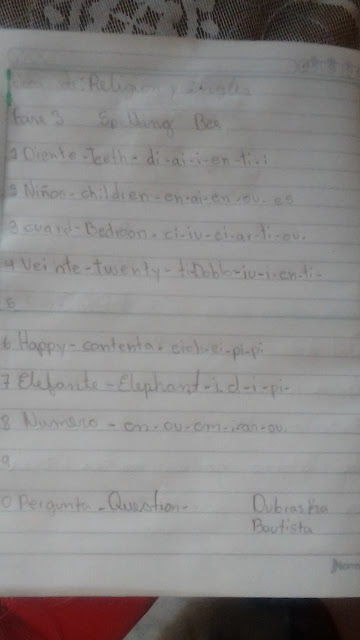 di: Religion y ingles
Fase 3 Spelling Bee
1 Diente-Teeth-di-ai-i-en-ti-i
2 Niños-children-en-ai-en-ou-es
3 cuard-Bedroon-ci-iu-ei-ar-ti-ou.
4 Veinte-twenty-
5
6 Happy-contenta-eich-ei-pi-pi
7 Elefante-Elephant-i-el-i-pi-
8 Numero-en-ou-em-
9
0 Pergunta-Question-
Dubraska
Bautista